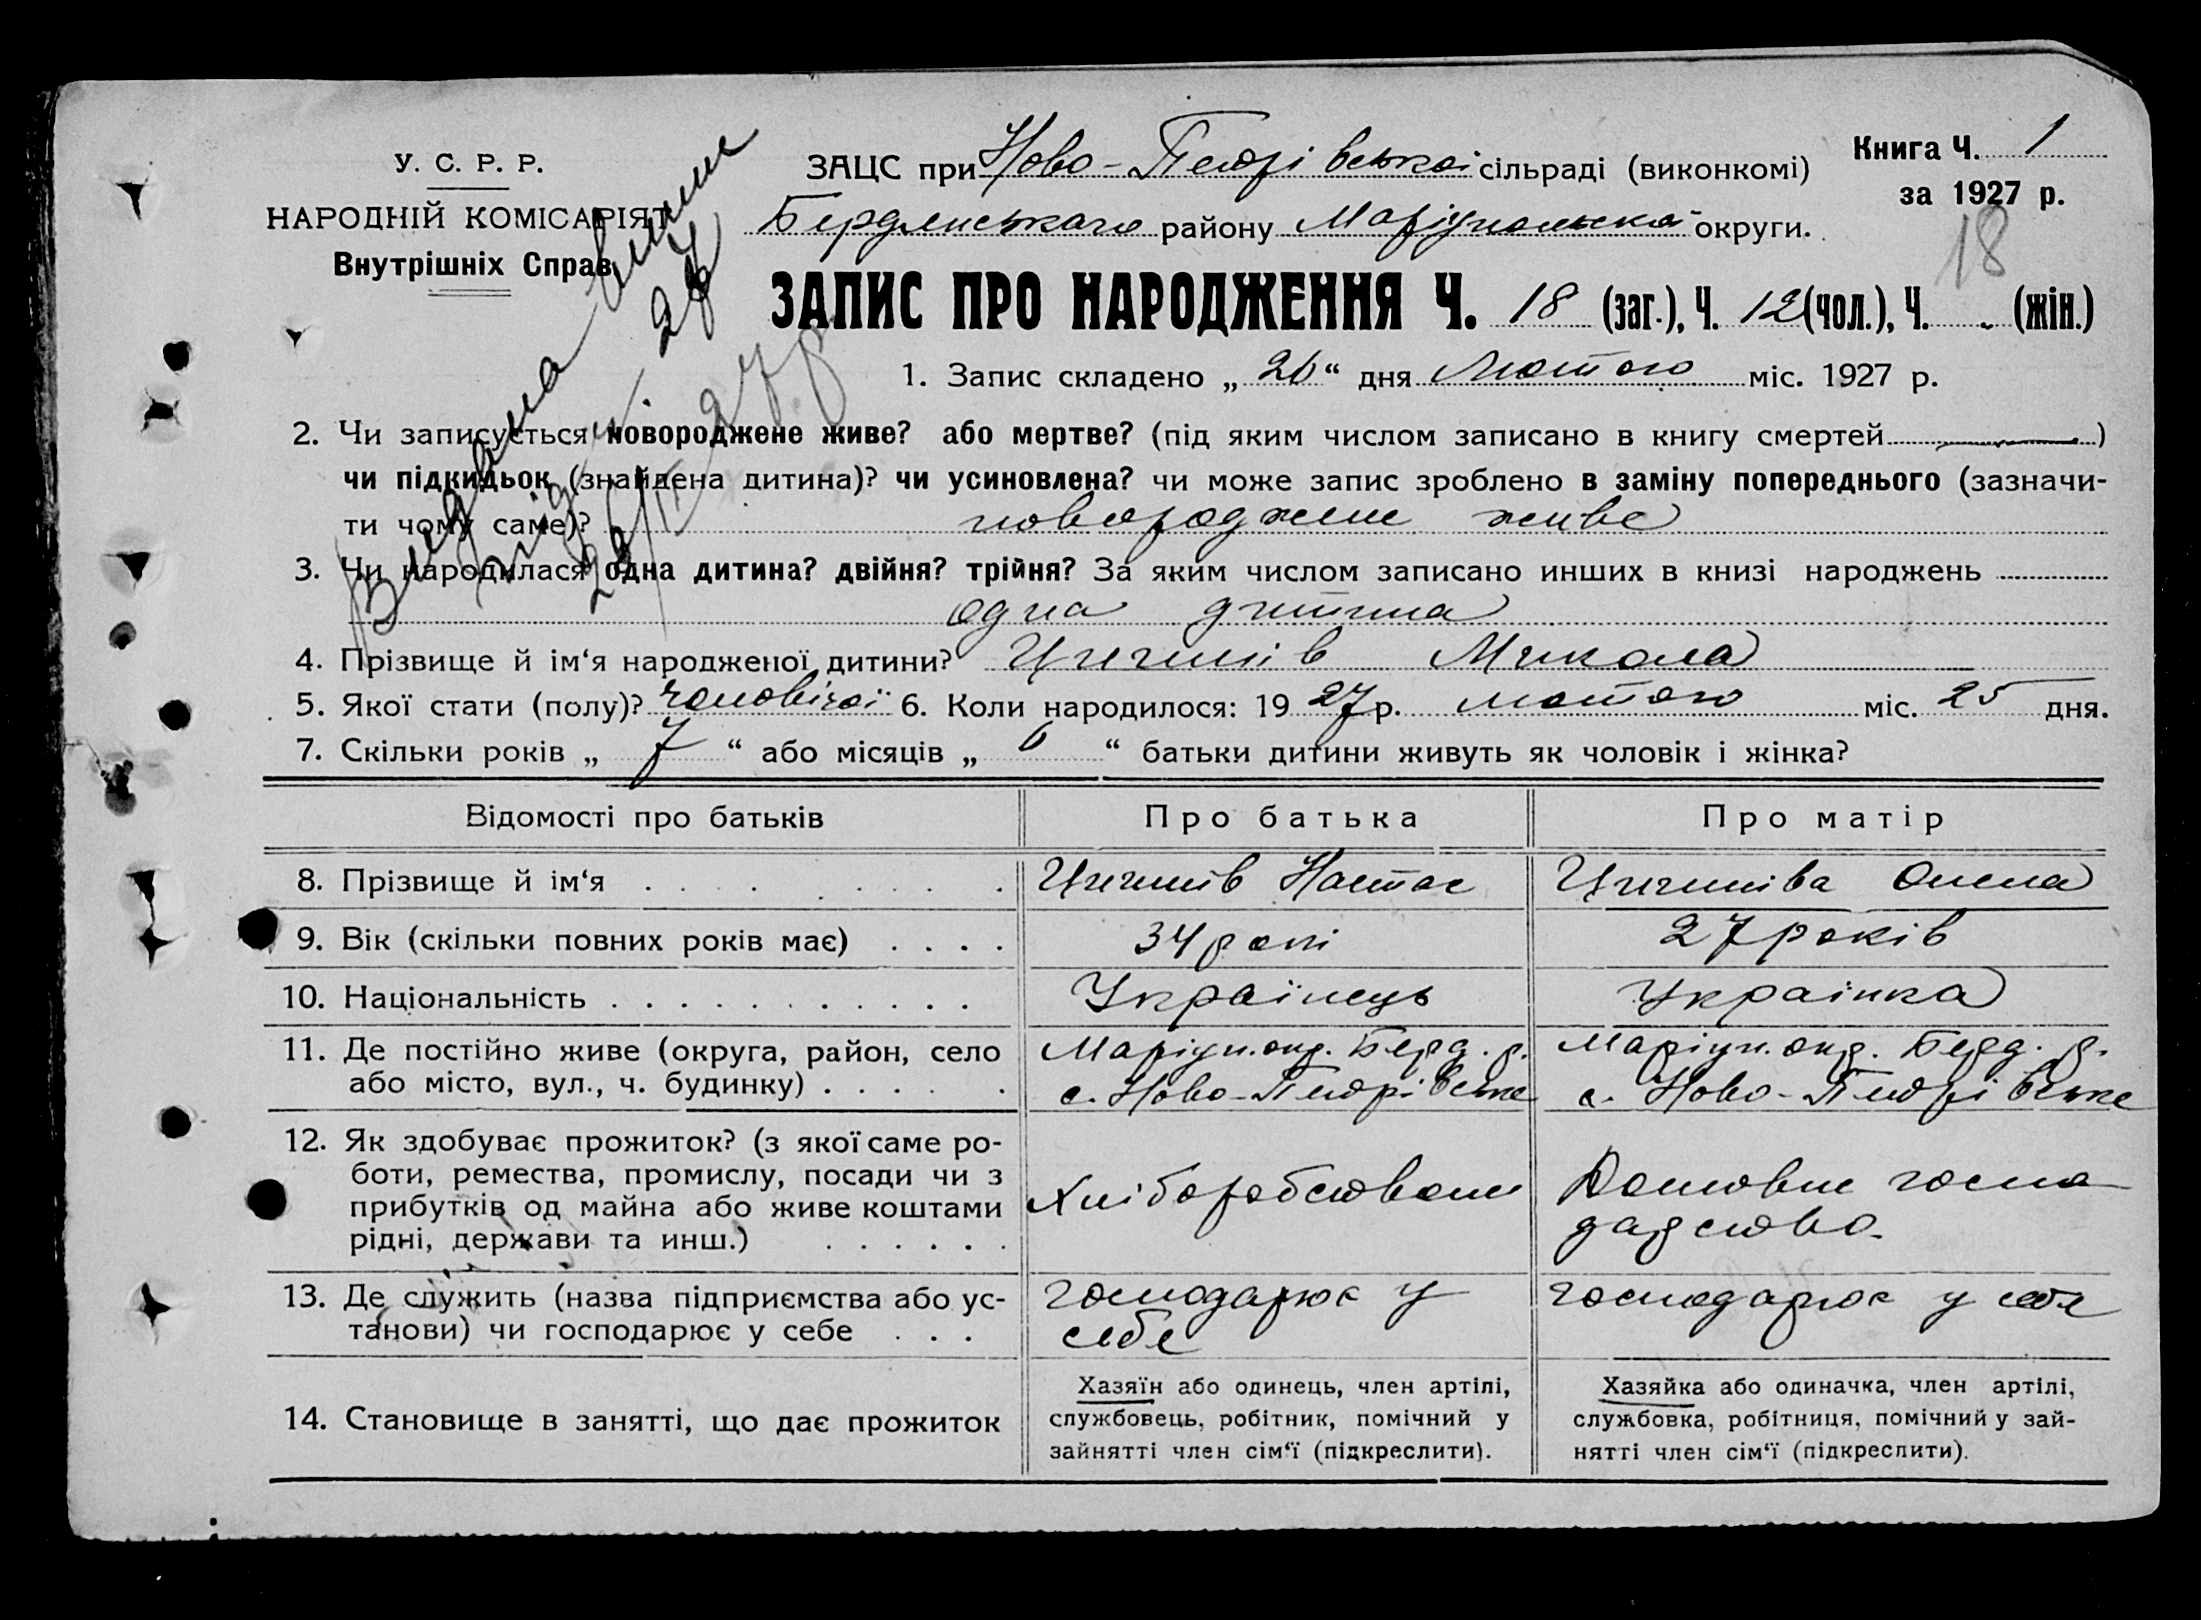 У. С. Р. Р.
НАРОДНІЙ КОМІСАРІЯТ
Внутрішніх Справ
ЗАЦС при Ново-Петрівської сільраді (виконкомі)
Бердянського району Маріупольської округи.
Книга Ч. 1
за 1927 р.
18
ЗАПИС ПРО НАРОДЖЕННЯ Ч. 18 (заг.), Ч. 12 (чол.), Ч. - (жін.)
1. Запис складено „ 26 “ дня Лютого міс. 1927 р.
2. Чи записується новороджене живе? або мертве? (під яким числом записано в книгу смертей — )
чи підкидьок (знайдена дитина)? чи усиновлена? чи може запис зроблено в заміну попереднього (зазначи-
ти чому саме)? новороджене живе
3. Чи народилася одна дитина? двійня? трійня? За яким числом записано инших в книзі народжень
одна дитина
4. Прізвище й ім‘я народженої дитини? Микола
5. Якої стати (полу)? чоловічої 6. Коли народилося: 19 27 р. лютого міс. 25 дня.
7. Скільки років „ 7 “ або місяців „ 6 “ батьки дитини живуть як чоловік і жінка?
Відомості про батьків Про батька Про матір
8. Прізвище й ім‘я Настас Олена
9. Вік (скільки повних років має) 34 роки 27 років
10. Національність Українець Українка
11. Де постійно живе (округа, район, село Маріуп. окр. Берд. р. Маріуп. окр. Берд. р.
або місто, вул., ч. будинку) с. Ново-Петрівське с. Ново-Петрівське
12. Як здобуває прожиток? (з якої саме ро-
боти, ремества, промислу, посади чи з
прибутків од майна або живе коштами
рідні, держави та инш.)
Хліборобством
Домовне госпо
дарство.
13. Де служить (назва підприємства або ус-
танови) чи господарює у себе
господарює у
себе
господарює у себе
14. Становище в занятті, що дає прожиток
Хазяїн або одинець, член артілі,
службовець, робітник, помічний у
зайнятті член сім‘ї (підкреслити).
Хазяйка або одиначка, член артілі,
службовка, робітниця, помічний у зай-
нятті член сім‘ї (підкреслити).
Видана